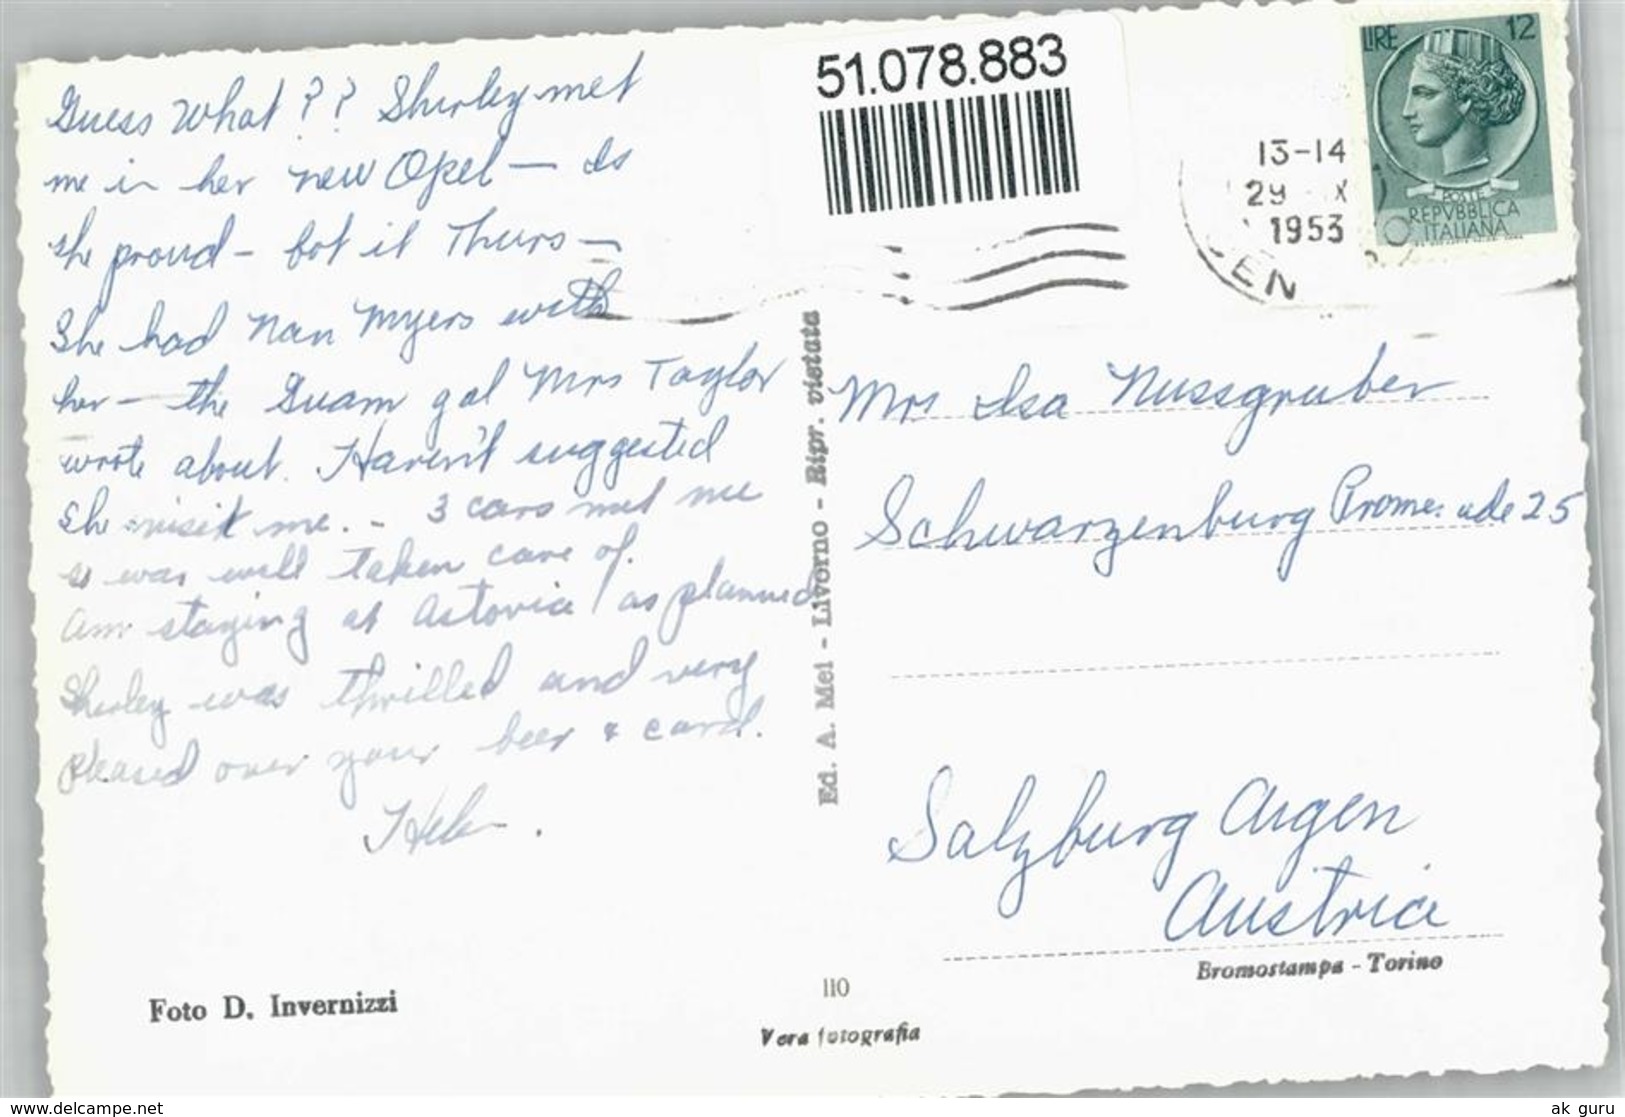 Guess What?? Shirley met
me in her new Opel — Is
she proud — bot it Thurs —
She had Nan Myers with
her — the Guam gal Mrs Taylor
wrote about. Haven't suggested
she visit me. - 3 cars met me
so was well taken care of.
Am staying at Astoria as planned
Shirley was thrilled and very
pleased over your beer & card.
Helen.
Foto D. Invernizzi
51.078.883
LIRE 12
POSTE
REPVBBLICA
ITALIANA
13-14
29 X
1953
EN
Ed. A. Mei - Livorno - Ripr. vietata
Mrs Isa Nussgruber
Schwarzenburg Promenade 25
Salzburg Aigen
Austria
Bromostampa - Torino
110
Vera fotografia
www.delcampe.net
ak_guru